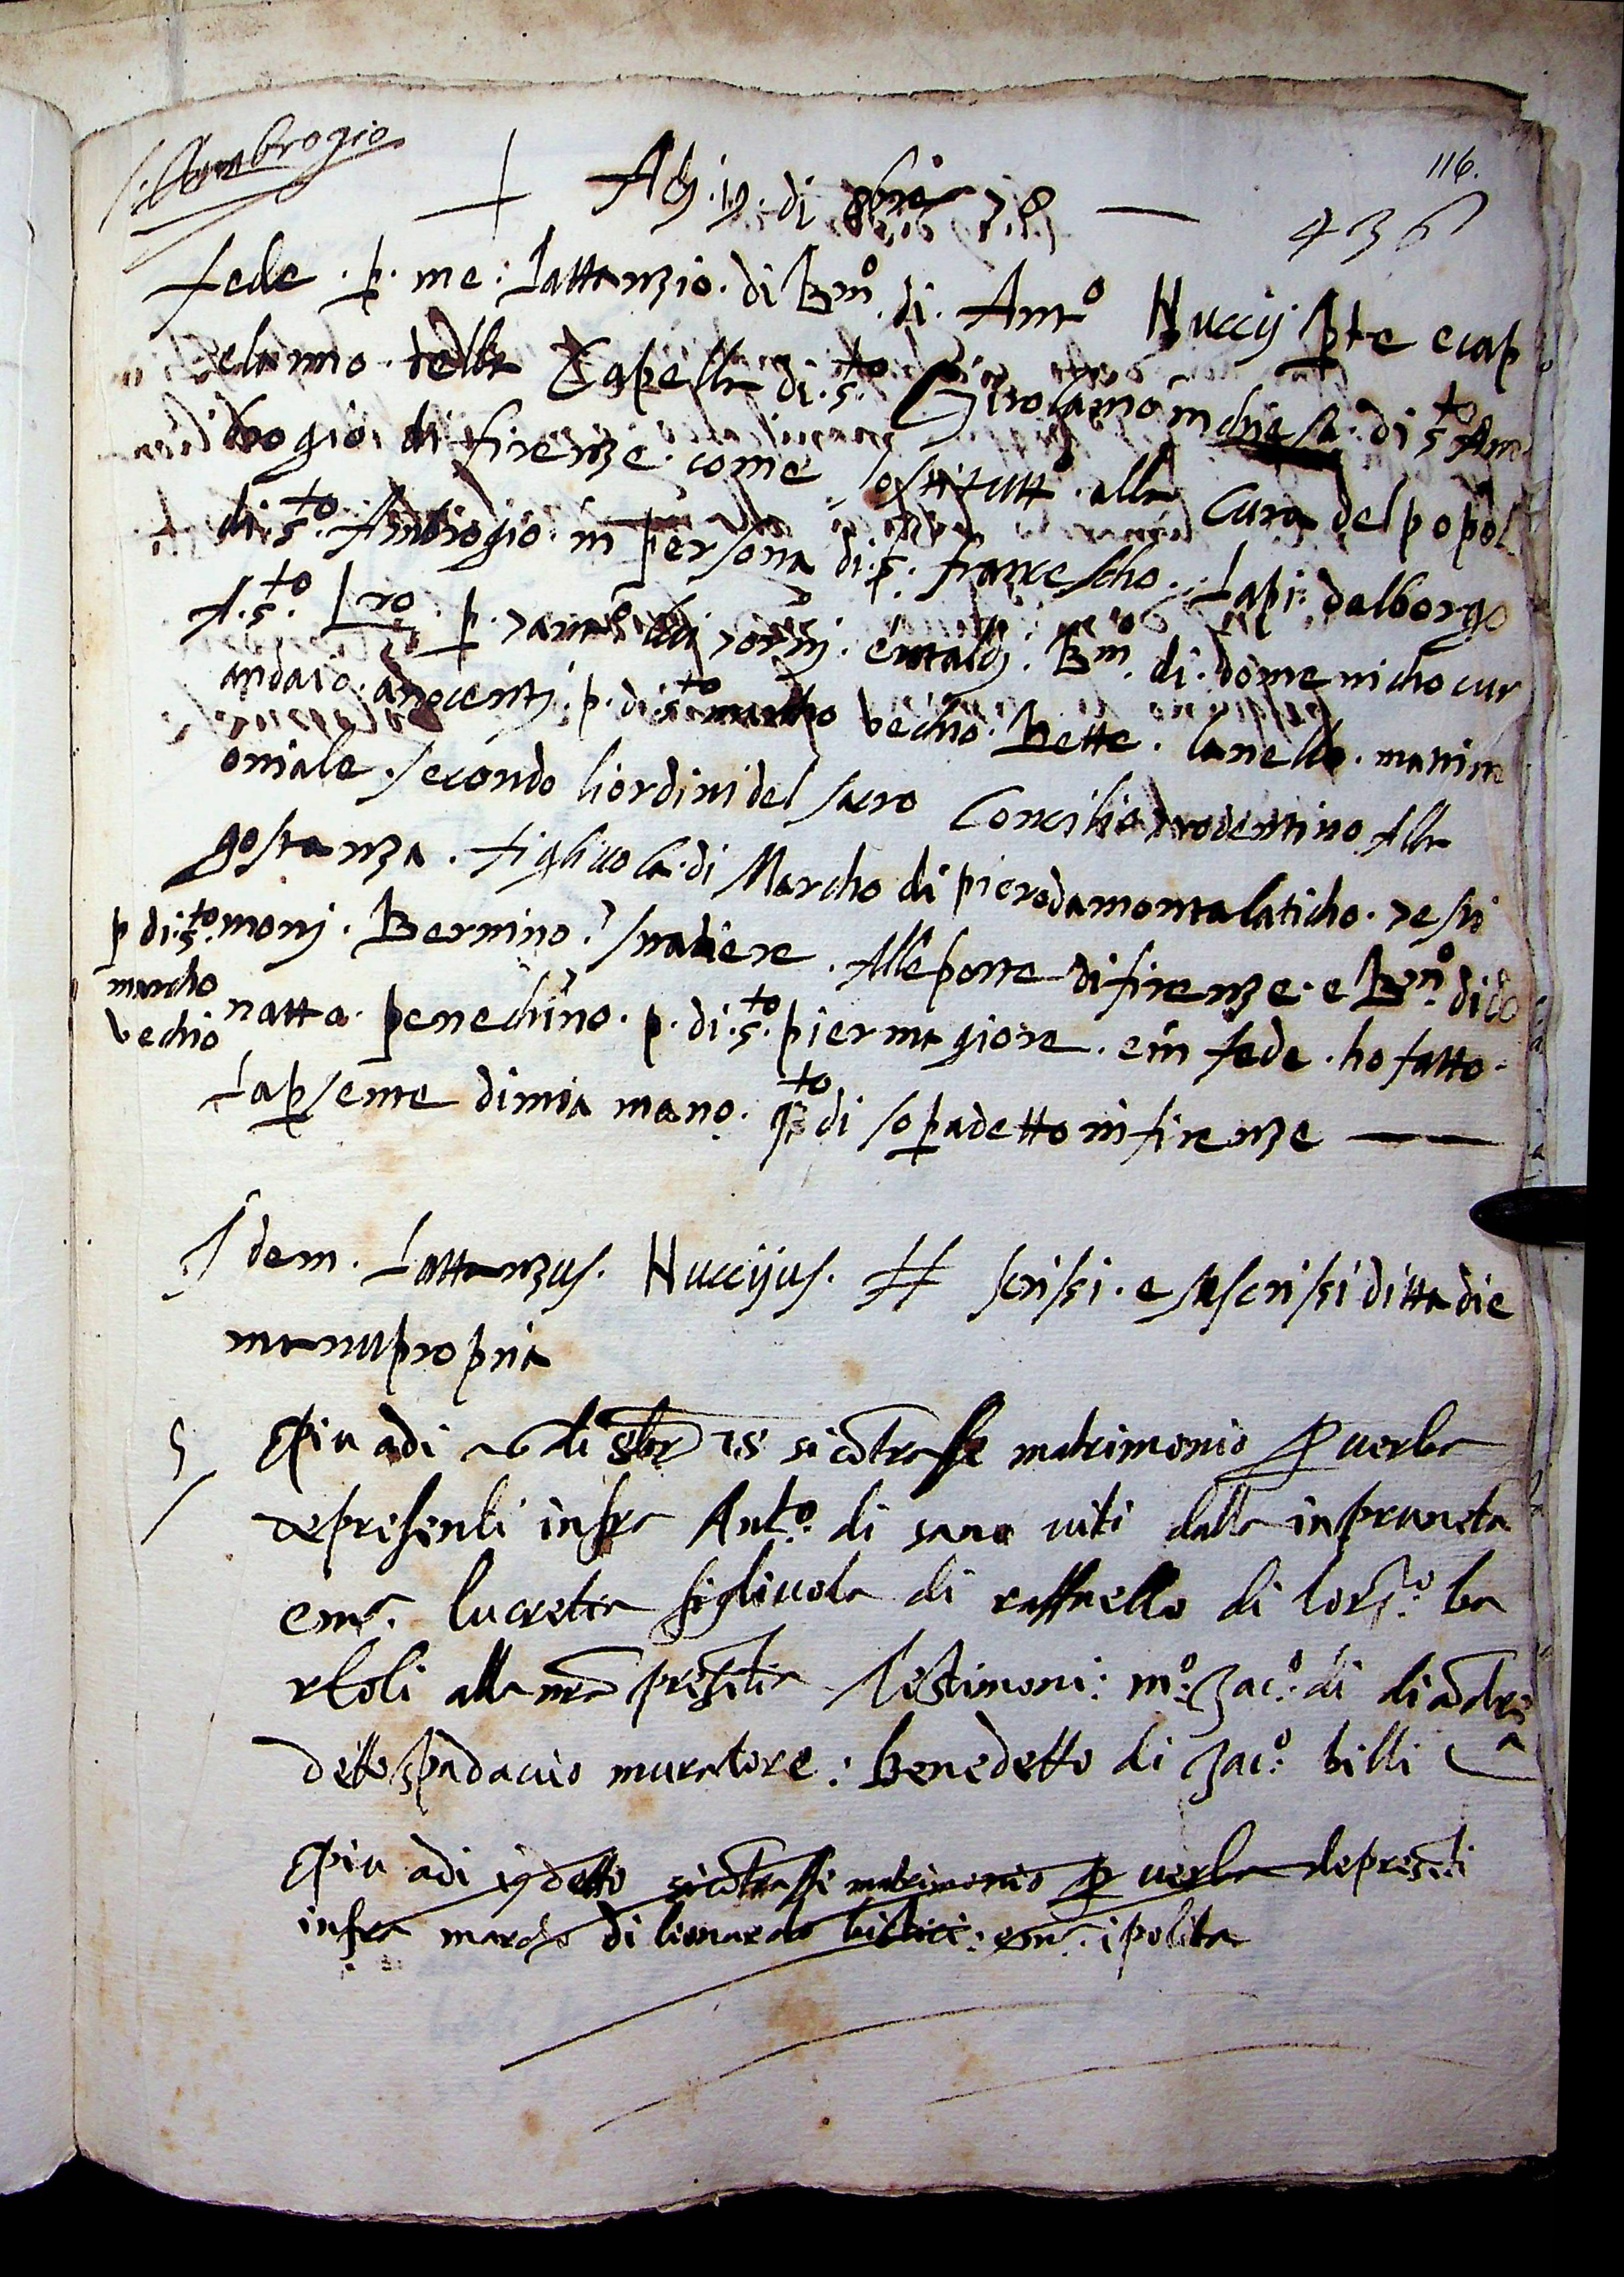 S. Ambrogio
116.
+ Adj. 19. di 8bre 78 —
436
fede . p. me . Lattanzio . di Bmo. di . Anto Nuccij Pte e cap
elanno . della Capella di . sto. Girolamo in chiesa . di sto Am
brogio . di firenze . come sostitutto . alla Cura del popol
di . sto. Ambrogio . in persona di . s. francescho . Lapi . dal borgo
A . sto. Lro . p. Bmo. di . domenicho cur
andaio . anocentj . p. di . sto marcho vechio . Bette . lanello . matrim
oniale . secondo li ordini del sacro Concilio trodentino Alla
gostanza . figliuola . di Marcho di piero da montalaticho . testi
p di . sto. monj . Bernino . Alle porte di firenze . e Bno. di do
marcho
vechio
natto . penechino . p . di . sto. pier magiore . e in fede . ho fatto .
La pseme di mia mano . to di sopadetto in firenze —
Idem . Lattanzus . Nuccijus . scrissi . e suscrissi ditta die
manu propria
5 E piu adi di 8br 78 si cōtrasse matrimonio p uerba
de presenti infra Anto. di sano uiti dalla inpruneta
e ma. lucretia figliuola di raffaello di lorzo. ba
rtoli alla mia presētia Testimoni : mo. Jaco. di di ādre
a
detto spadacuio muratore : Benedetto di Jaco. billi
E piu adi 19 detto si cōtrassi matrimonio p uerba de presēti
infra marcho di lionardo : e ma. ipolita